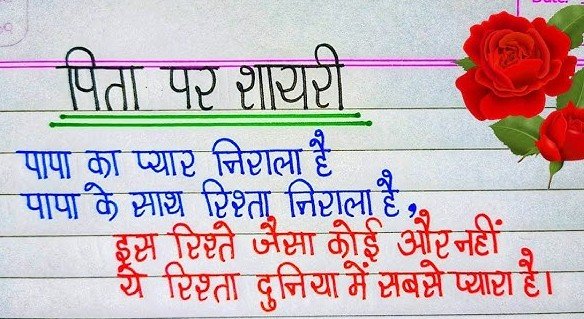 पिता पर शायरी
पापा का प्यार निराला है
पापा के साथ रिश्ता निराला है,
इस रिश्ते जैसा कोई और नहीं
ये रिश्ता दुनिया में सबसे प्यारा है।